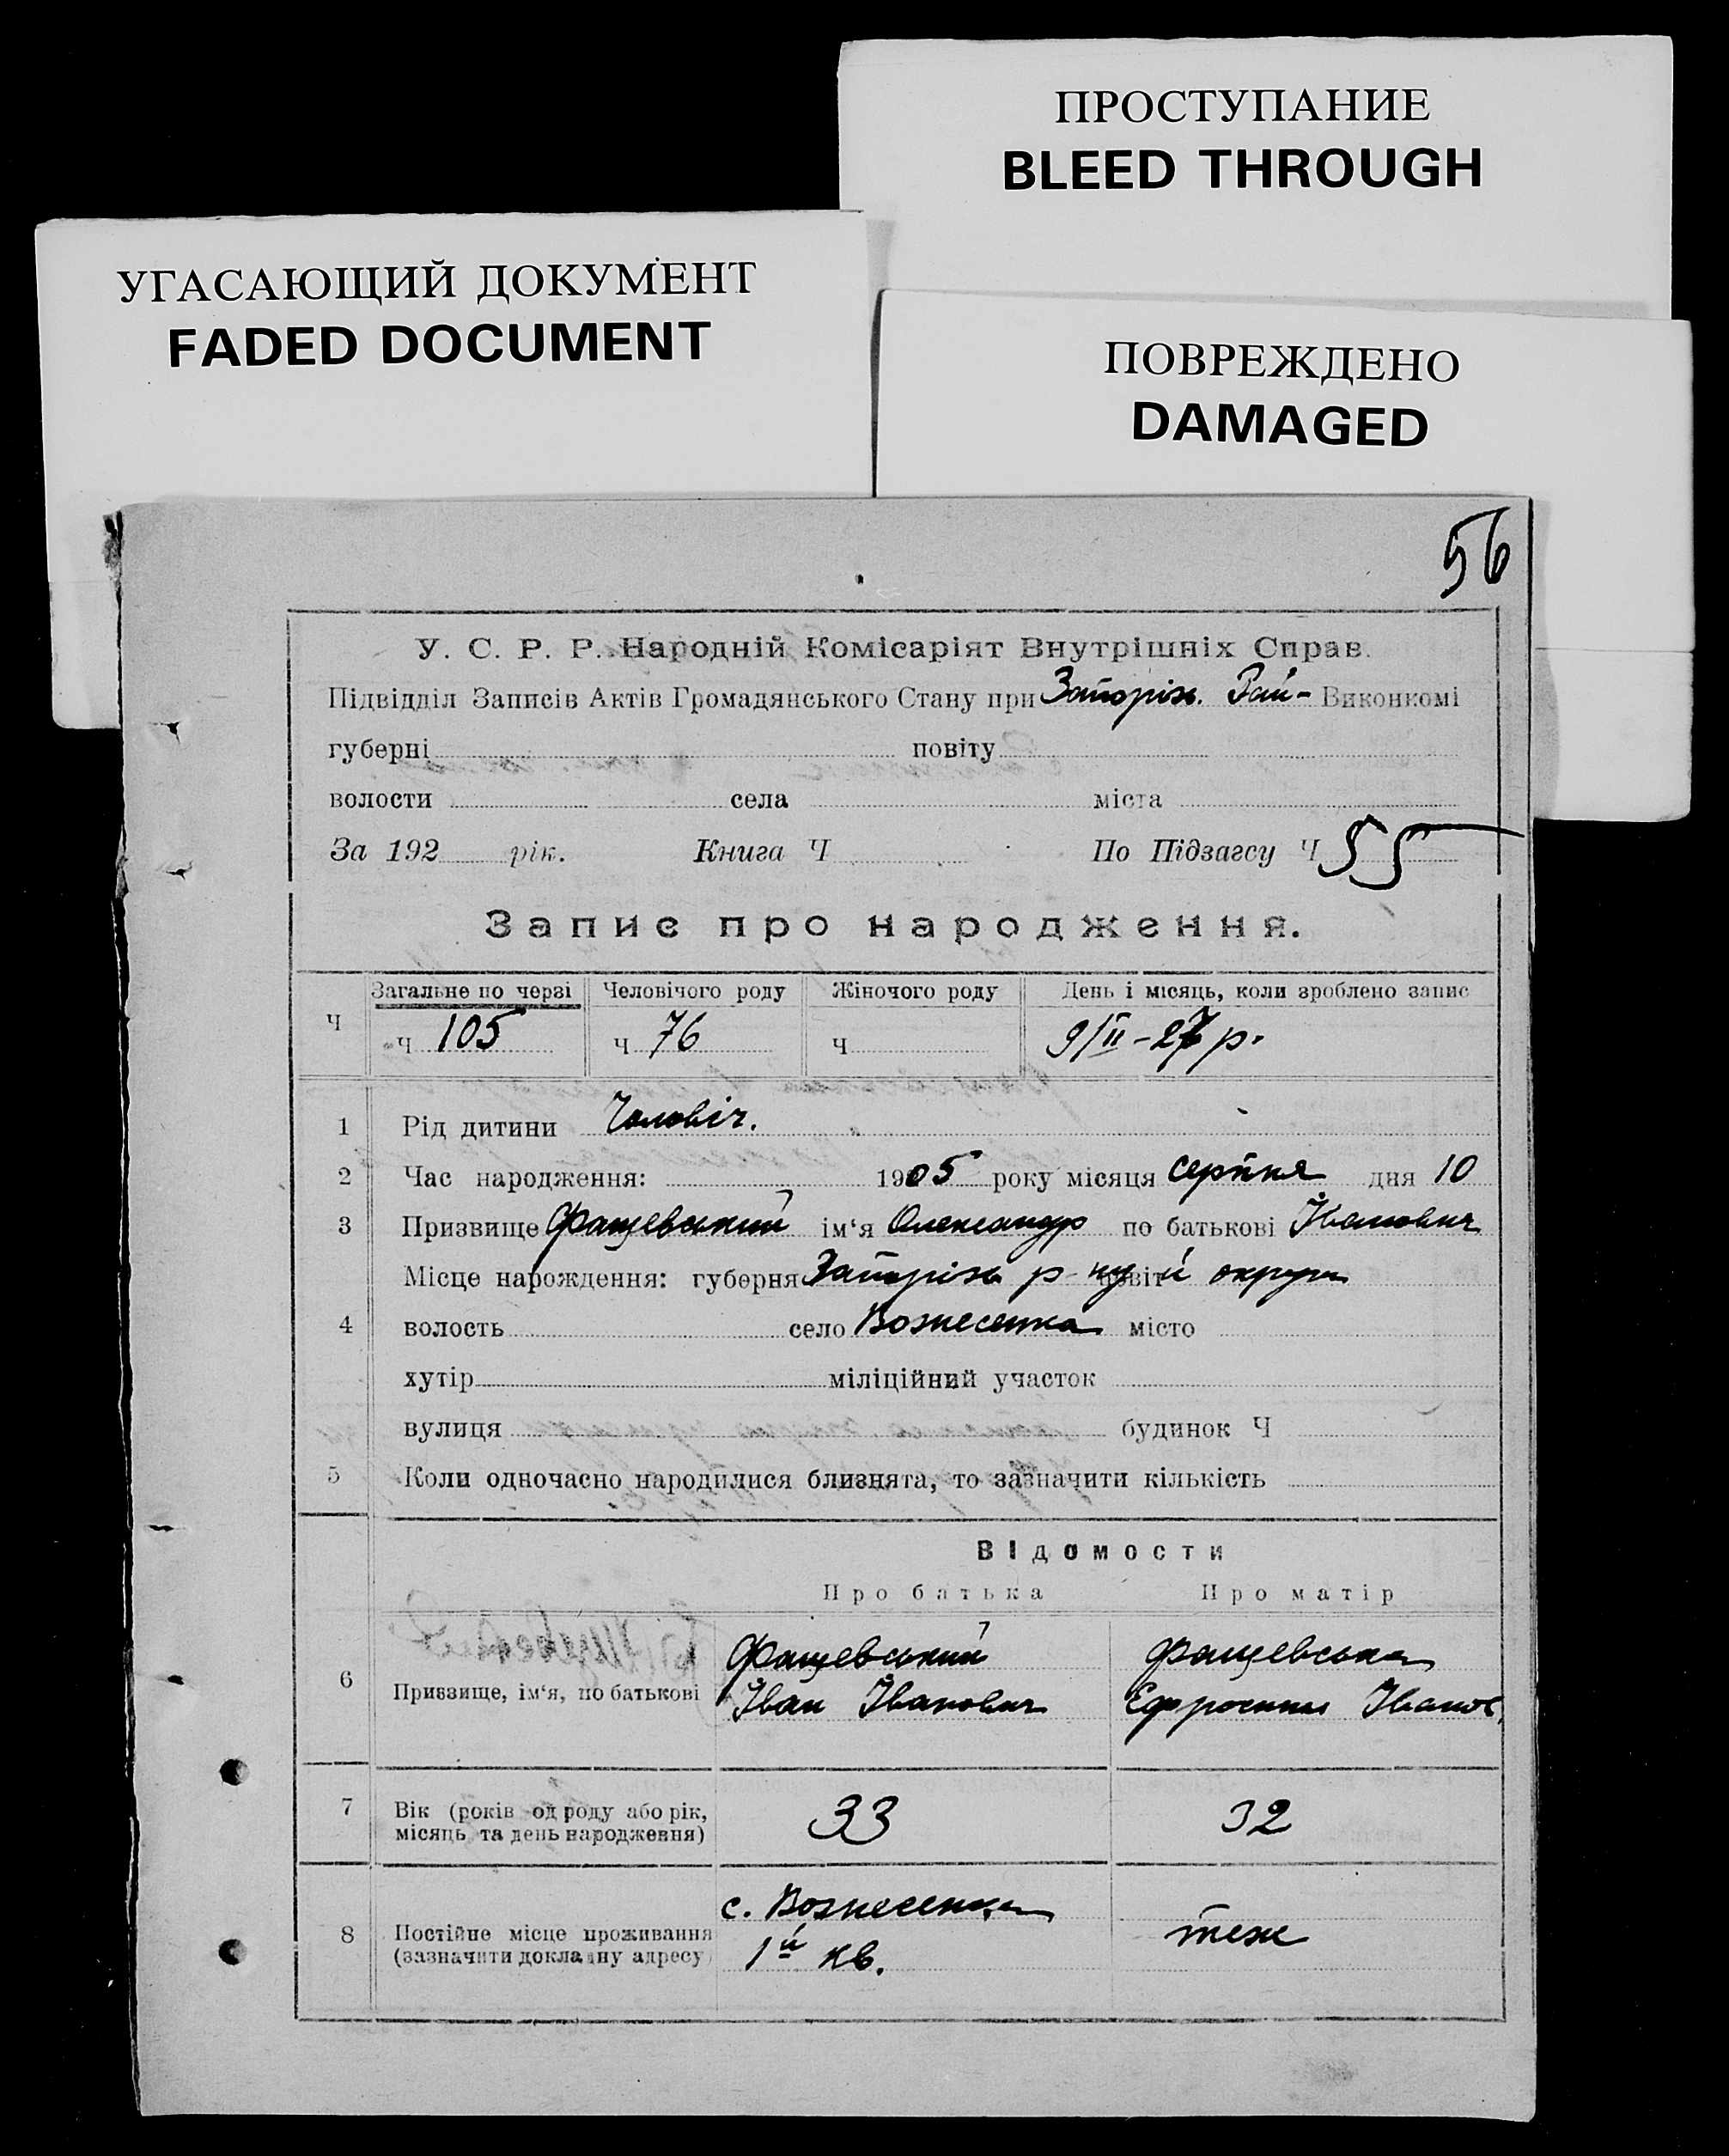 ПРОСТУПАНИЕ
BLEED THROUGH
УГАСАЮЩИЙ ДОКУМЕНТ
FADED DOCUMENT
ПОВРЕЖДЕНО
DAMAGED
56
У. С. Р. Р. Народній Комісаріят Внутрішніх Справ.
Підвідділ Записів Актів Громадянського Стану при Запоріж. Рай- Виконкомі
губерні повіту
волости села міста
За 192 рік. Книга Ч По Підзагсу Ч 55
Запис про народження.
Ч Загальне по черзі Человічого роду Жіночого роду День і місяць, коли зроблено запис
ч 105 ч 76 ч 9/II-27 р.
1 Рід дитини Чоловіч.
2 Час народження: 1905 року місяця серпня дня 10
3 Призвище Фащевський ім‘я Олександр по батькові Іванович
Місце нарождення: губерня Запоріж р-ну й повіт округи
4 волость село Вознесенка місто
хутір міліційний участок
вулиця будинок Ч
5 Коли одночасно народилися близнята, то зазначити кількість
Відомости
Про батька Про матір
6 Призвище, ім‘я, по батькові Фащевський Іван Іванович Фащевська Ефросинія Іванов.
7 Вік (років од роду або рік, місяць та день народження) 33 32
8 Постійне місце проживання (зазначити докладну адресу) с. Вознесенка 1й кв. теж